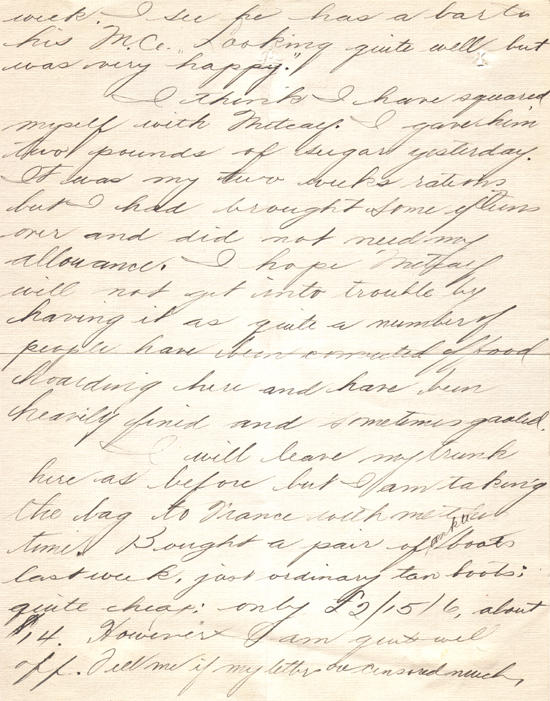 week. I see he has a bar to
his M.C. "Looking quite well but
was very happy."
I think I have squared
myself with Metcalf. I gave him
two pounds of sugar yesterday.
It was my two weeks rations
but I had brought some of
over and did not need my
allowance. I hope Metcalf
will not get into trouble by
having it as quite a number of
people have been convicted of food
hoarding here and have been
heavily fined and sometimes gaoled.
I will leave my trunk
here as before but I am taking
the bag to France with me this
time. Bought a pair of ankle boots
last week, just ordinary tan boots;
quite cheap; only £2/15/6, about
$14. However I am quite well
off. Tell me if my letters are censored much,